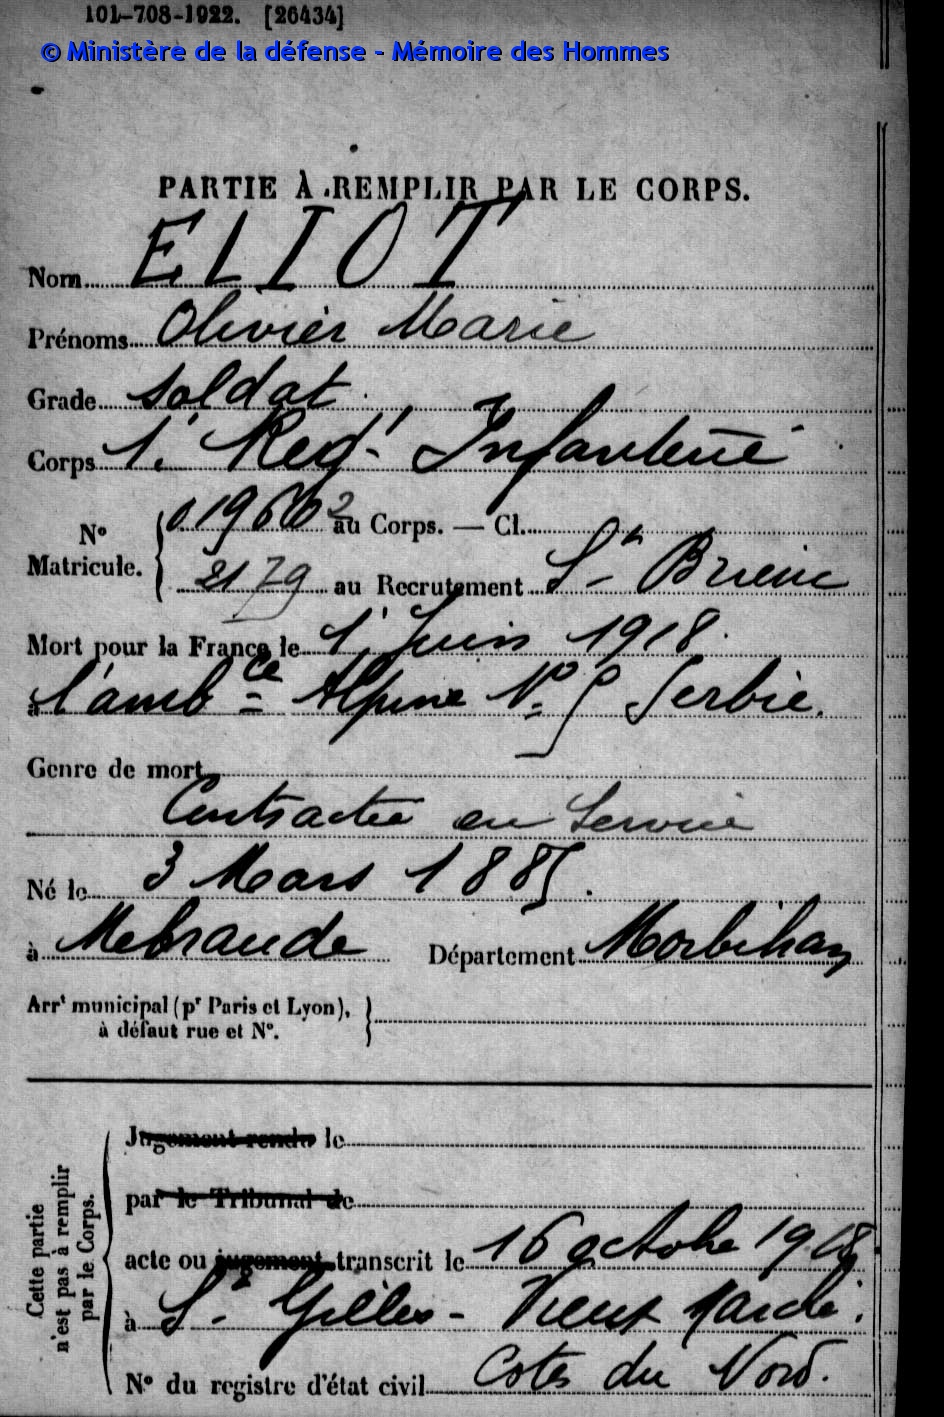 101-708-1922. [26434]
© Ministère de la défense - Mémoire des Hommes
PARTIE À REMPLIR PAR LE CORPS.
Nom ELIOT
Prénoms Olivier Marie
Grade Soldat
Corps 1.' Reg.t Infanterie
N° Matricule. au Corps. — Cl.
2179 au Recrutement St Brieuc
Mort pour la France le 1' Juin 1918.
à l'amb.ce Alpine N° Serbie.
Genre de mort
Contractée en Service
Né le 3 Mars 1885.
à Département Morbihan
Arrt municipal (pr Paris et Lyon),
à défaut rue et N°.
Cette partie
n'est pas à remplir
par le Corps.
Jugement rendu le
par le Tribunal de
acte ou jugement transcrit le 16 octobre 1918
à St Gilles - Vieux Marché.
Cotes du Nord.
N° du registre d'état civil